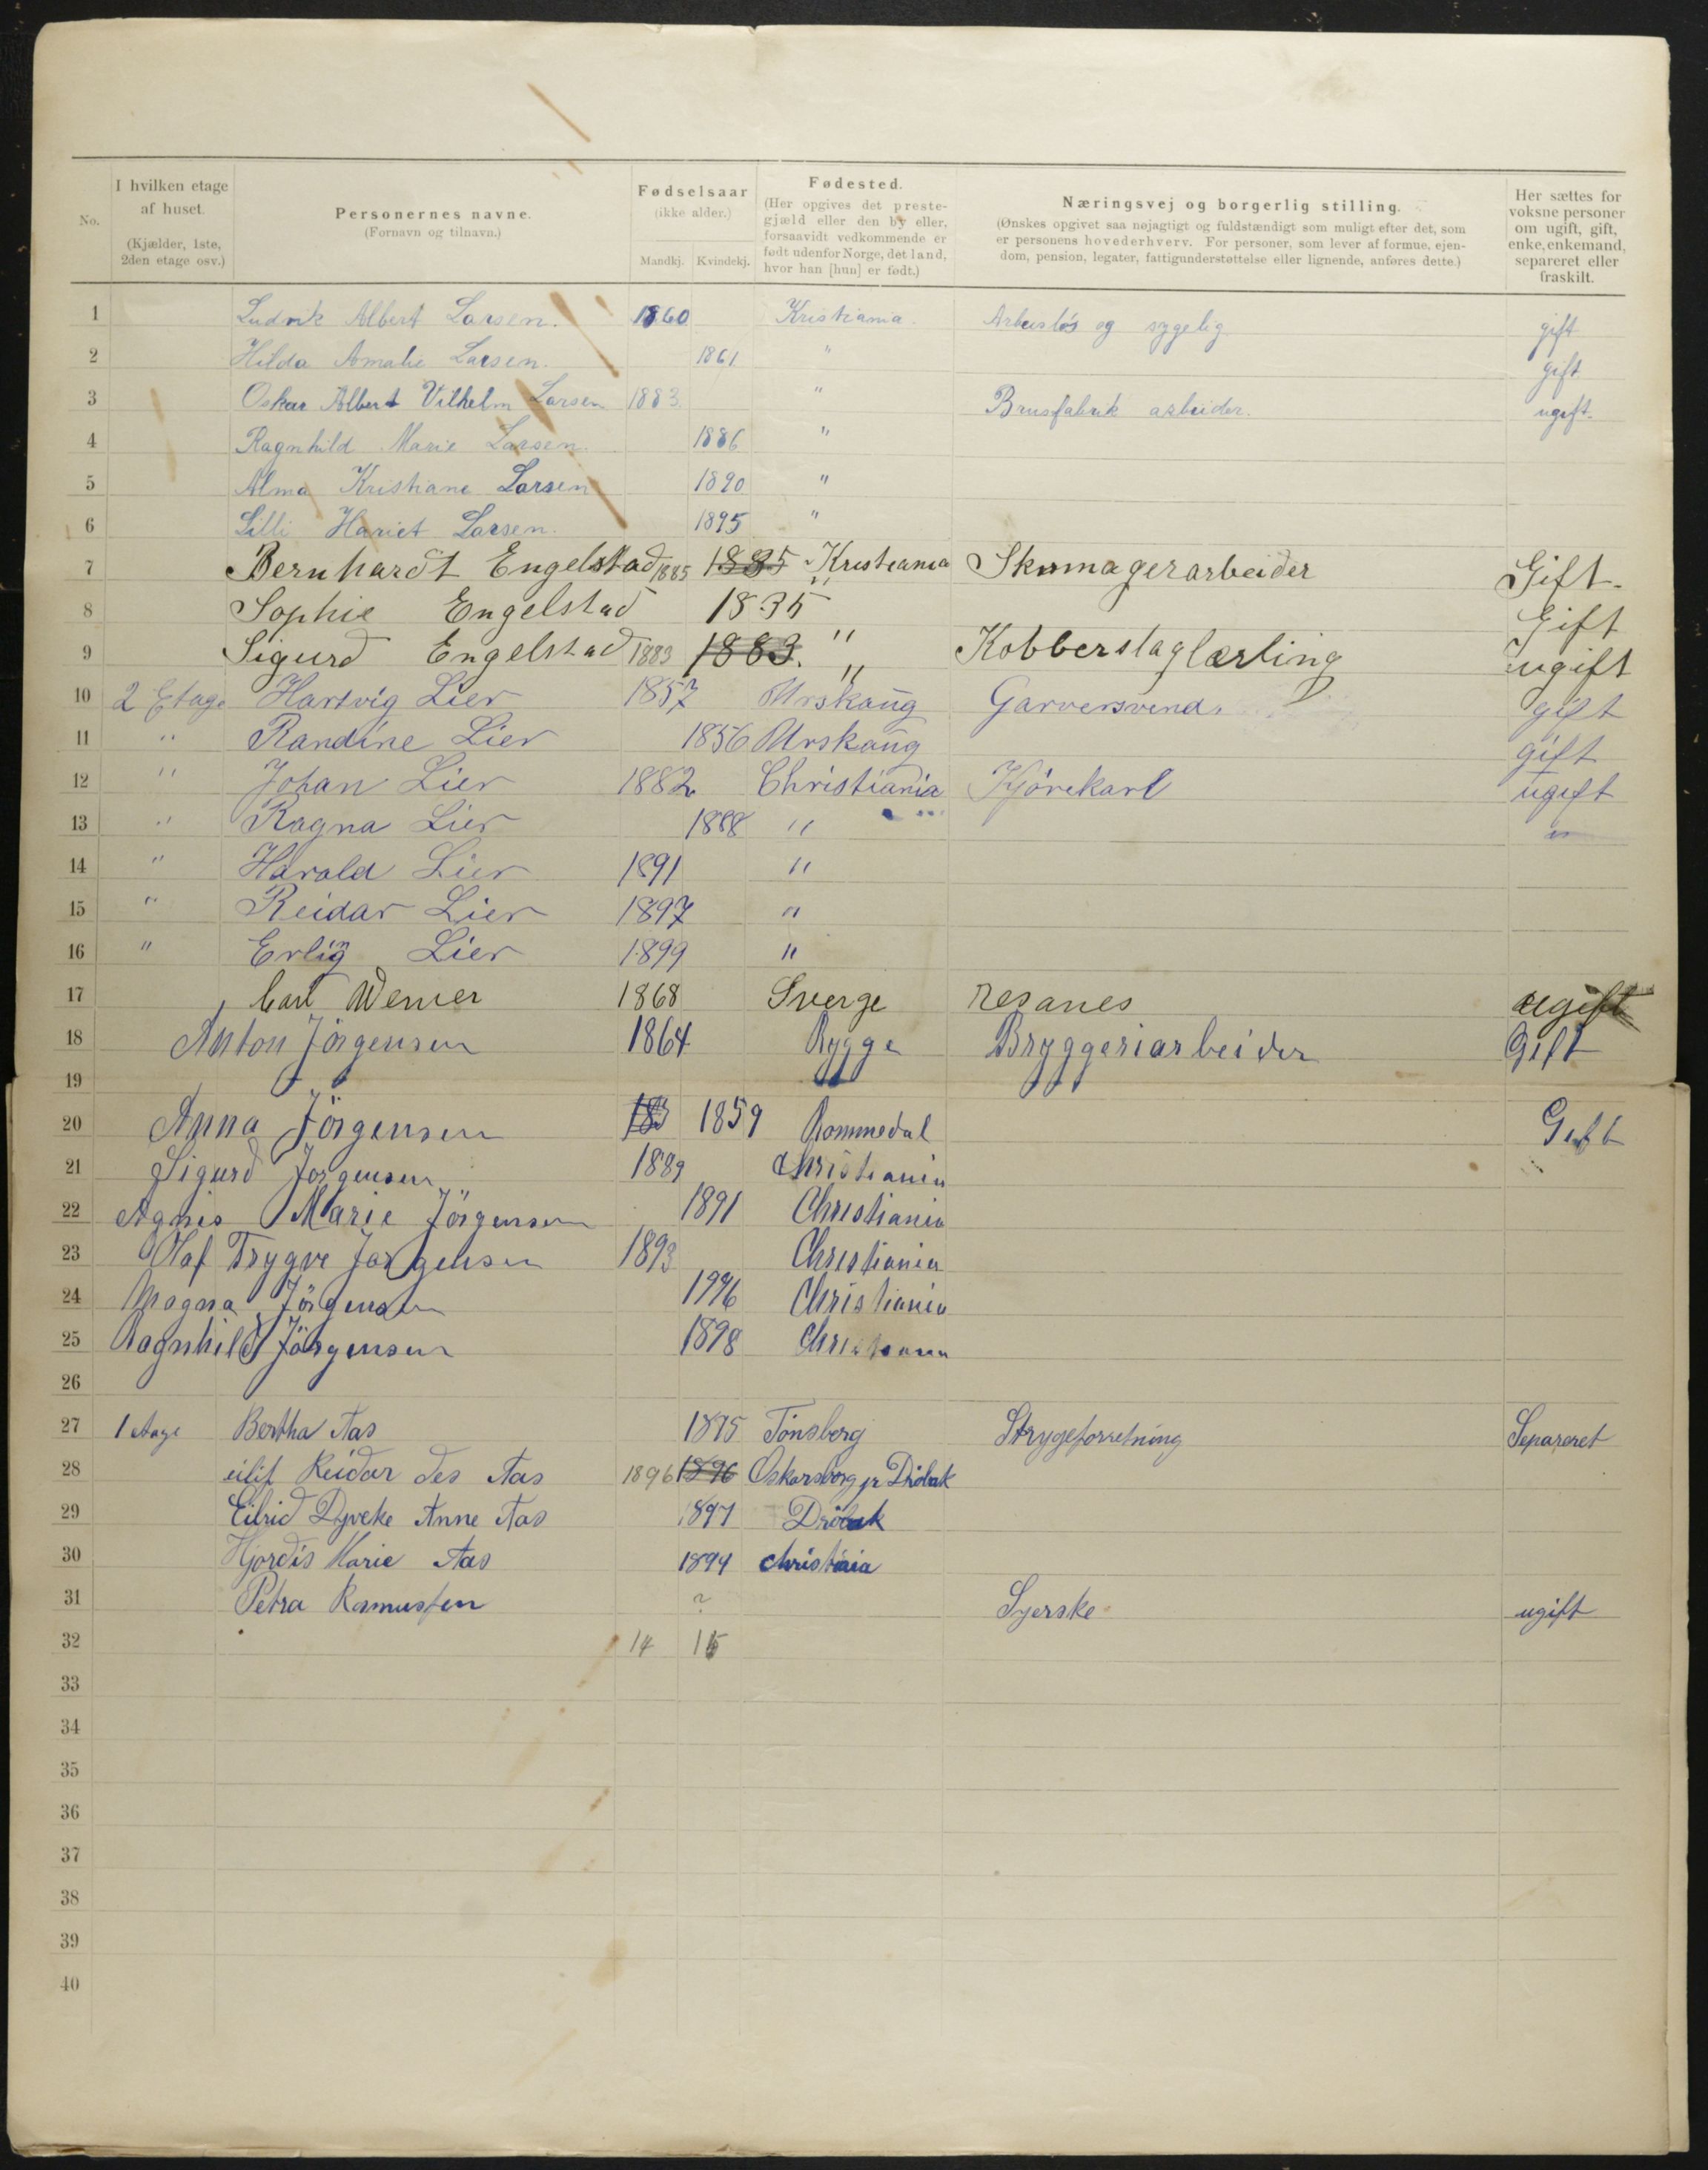 No.
I hvilken etage af huset.
(Kjælder, 1ste, 2den etage osv.)
Personernes navne.
(Fornavn og tilnavn.)
Fødselsaar
(ikke alder.)
Mandkj. Kvindekj.
Fødested.
(Her opgives det prestegjæld eller den by eller, forsaavidt vedkommende er født udenfor Norge, det land, hvor han [hun] er født.)
Næringsvej og borgerlig stilling.
(Ønskes opgivet saa nøjagtigt og fuldstændigt som muligt efter det, som er personens hovederhverv. For personer, som lever af formue, ejendom, pension, legater, fattigunderstøttelse eller lignende, anføres dette.)
Her sættes for voksne personer om ugift, gift, enke, enkemand, separeret eller fraskilt.
1 Ludvik Albert Larsen. 1860 Kristiania. Arbeisløs og sygelig gift
2 Hilda Amalie Larsen. 1861 " gift
3 Oskar Albert Vilhelm Larsen 1883. " Brusfabrik arbeider. ugift.
4 Ragnhild Marie Larsen. 1886 "
5 Alma Kristiane Larsen 1890 "
6 Lilli Hariet Larsen. 1895 "
7 Bernhardt Engelstad 1885 1835 Kristiania Skomagerarbeider Gift.
8 Sophie Engelstad 1835 " Gift
9 Sigurd Engelstad 1883 1883. " Kobberslaglærling ugift
10 2 Etage Hartvig Lier 1857 " Urskaug Garversvend. gift
11 " Randine Lier 1856 Urskaug gift
12 " Johan Lier 1882 Christiania Kjörekarl ugift
13 " Ragna Lier 1888 " "
14 " Harald Lier 1891 "
15 " Reidar Lier 1897 "
16 " Erling Lier 1899 "
17 Carl Werner 1868 Sverge resanes ugift
18 Anton Jörgensen 1864 Rygge Bryggeriarbeider Gift
19
20 Anna Jörgensen 183 1859 Rommedal Gift
21 Sigurd Jorgensen 1889 Christiania
22 Agnis Marie Jörgensen 1891 Christiania
23 Olaf Trygve Jorgensen 1893 Christiania
24 Magna Jörgensen 1996 Christiania
25 Ragnhild Jörgensen 1898 Christiana
26
27 1 Etage Bertha Aas 1875 Tönsberg Strygeforretning Separeret
28 eilif Reidar des Aas 1896 1896 Oskarsborg pr Dröbak
29 Eilrid Dyveke Anne Aas 1897 Dröbak
30 Hjordis Marie Aas 1899 Christiaia
31 Petra Rasmussen ? Syerske ugift
32 14 15
33
34
35
36
37
38
39
40